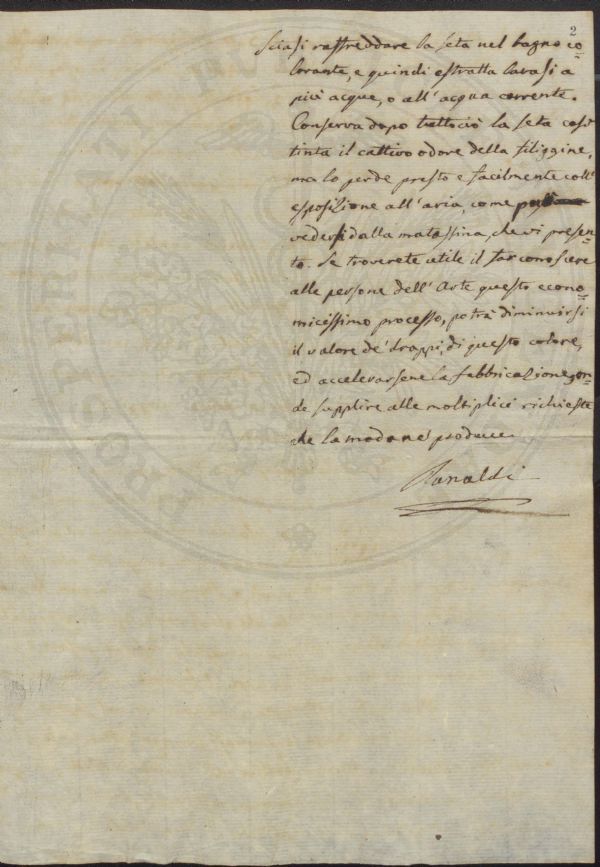 2
sciasi raffreddare la seta nel bagno co=
lorante, e quindi estratta lavasi a
più acque, o all'acqua corrente.
Conserva dopo tuttociò la seta così
tinta il cattivo odore della filiggine,
ma lo perde presto e facilmente coll'
esposizione all'aria, come
vedersi dalla matassina, che vi presen=
to. Se troverete utile il far conoscere
alle persone dell'Arte questo econo=
micissimo processo, potrà diminuirsi
il valore de' drappi, di questo colore,
ed accelerarsene la fabbricazione, on=
de supplire alle moltiplici richieste
che la moda ne produce.
Ranaldi